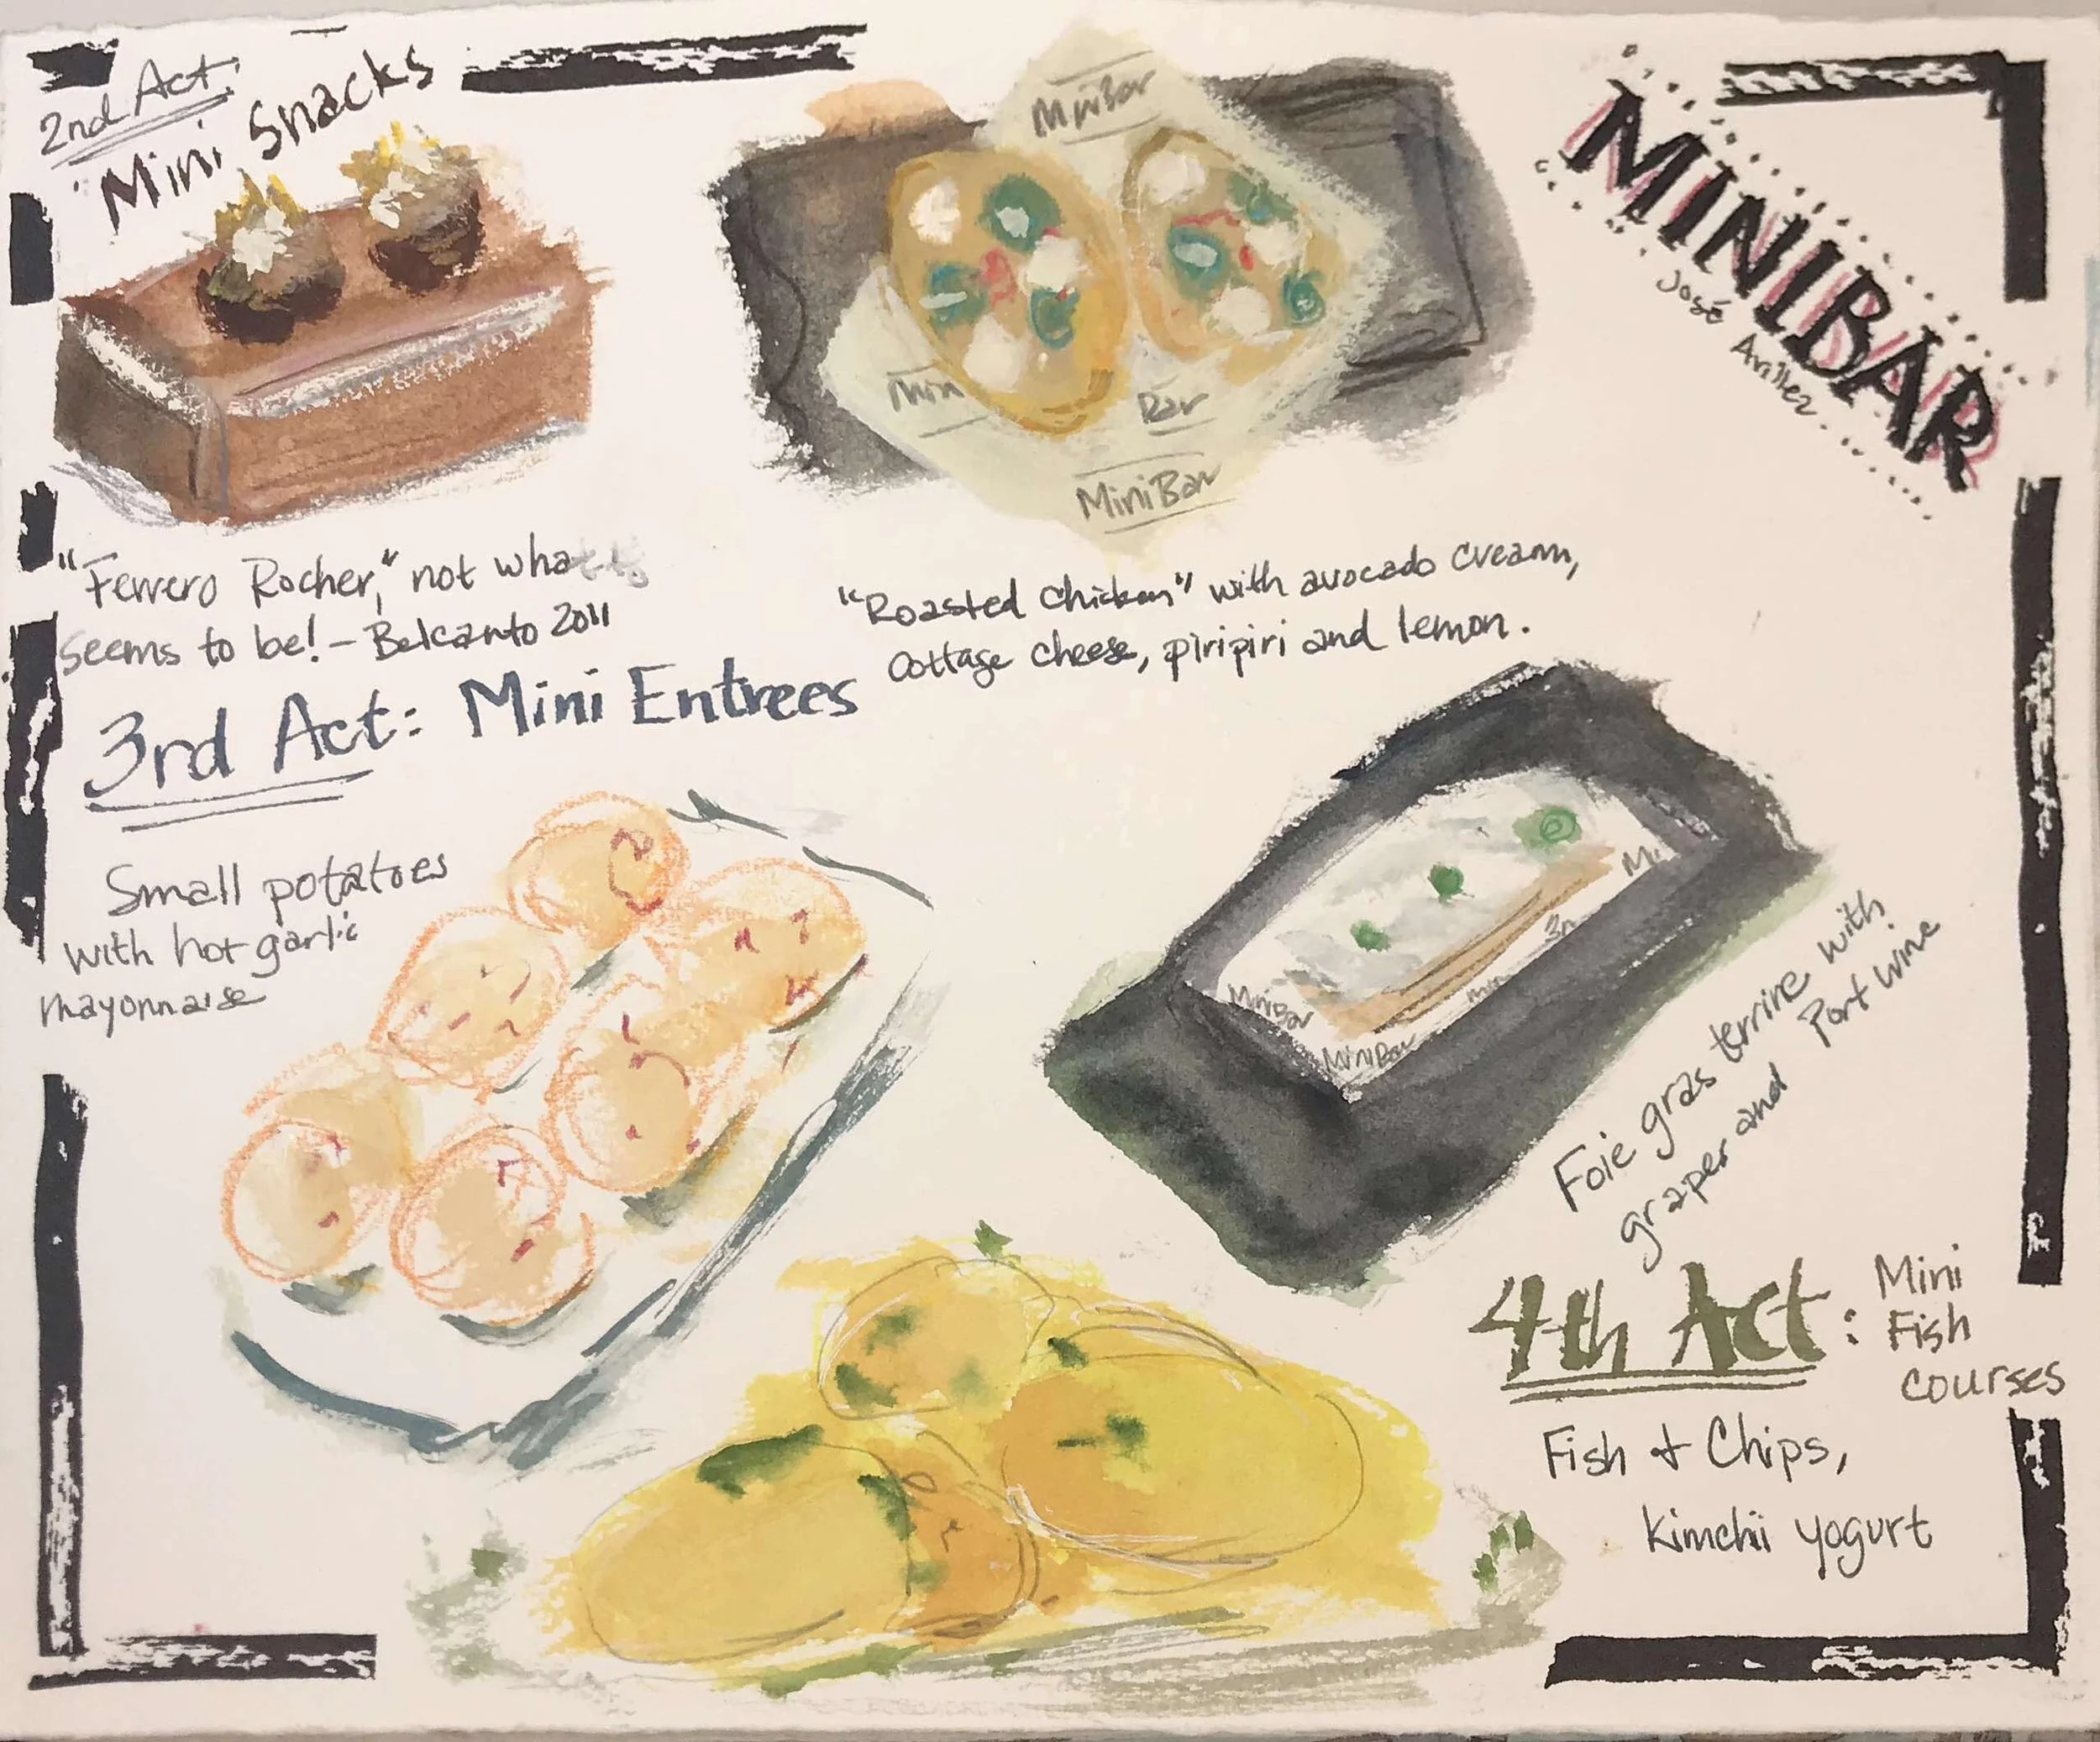 2nd Act:
Mini Snacks
MiniBar
Mini
Bar
MiniBar
MINIBAR
José Avillez
"Ferrero Rocher," not what
seems to be! - Belcanto 2011
"Roasted Chicken" with avocado cream,
cottage cheese, piripiri and lemon.
3rd Act: Mini Entrees
Small potatoes
with hot garlic
mayonnaise
Mi
MiniBar
MiniBar
Foie gras terrine with
graper and Port Wine
4th Act: Mini
Fish
courses
Fish & Chips,
Kimchi yogurt